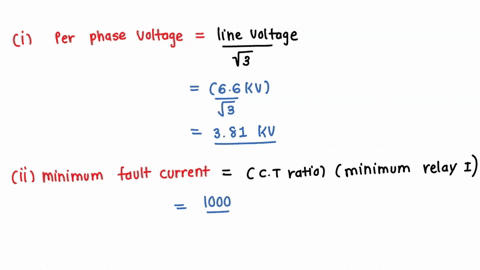 (i) Per phase voltage = line voltage
√3
= (6.6 KV)
√3
= 3.81 KV
(ii) minimum fault current = (C.T ratio) (minimum relay I)
= 1000